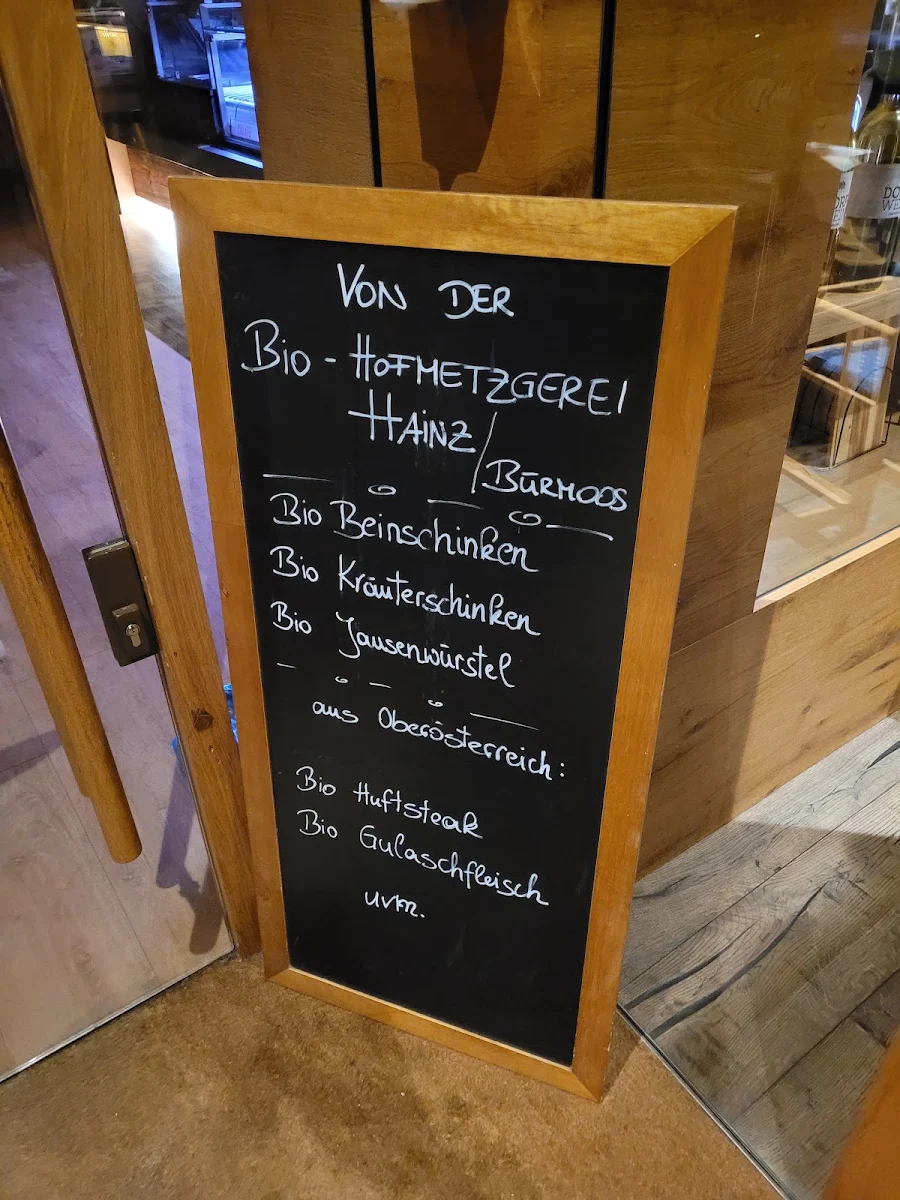 VON DER
Bio - HOFMETZGEREI
HAINZ / BÜRMOOS
Bio Beinschinken
Bio Kräuterschinken
Bio Jausenwürstel
aus Oberösterreich:
Bio Huftsteak
Bio Gulaschfleisch
uvm.